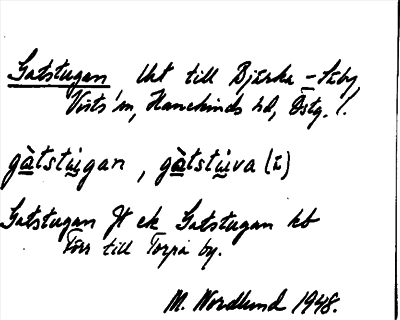 Gatstugan lht till Bjärka-Säby,
Vists sn, Hanekinds hd, Östg. l.
gàtstù̠gan, gàtstù̠va (ì)
Gatstugan Jt ek Gatstugan kb
Torr till Torpa by.
M. Nordlund 1948.